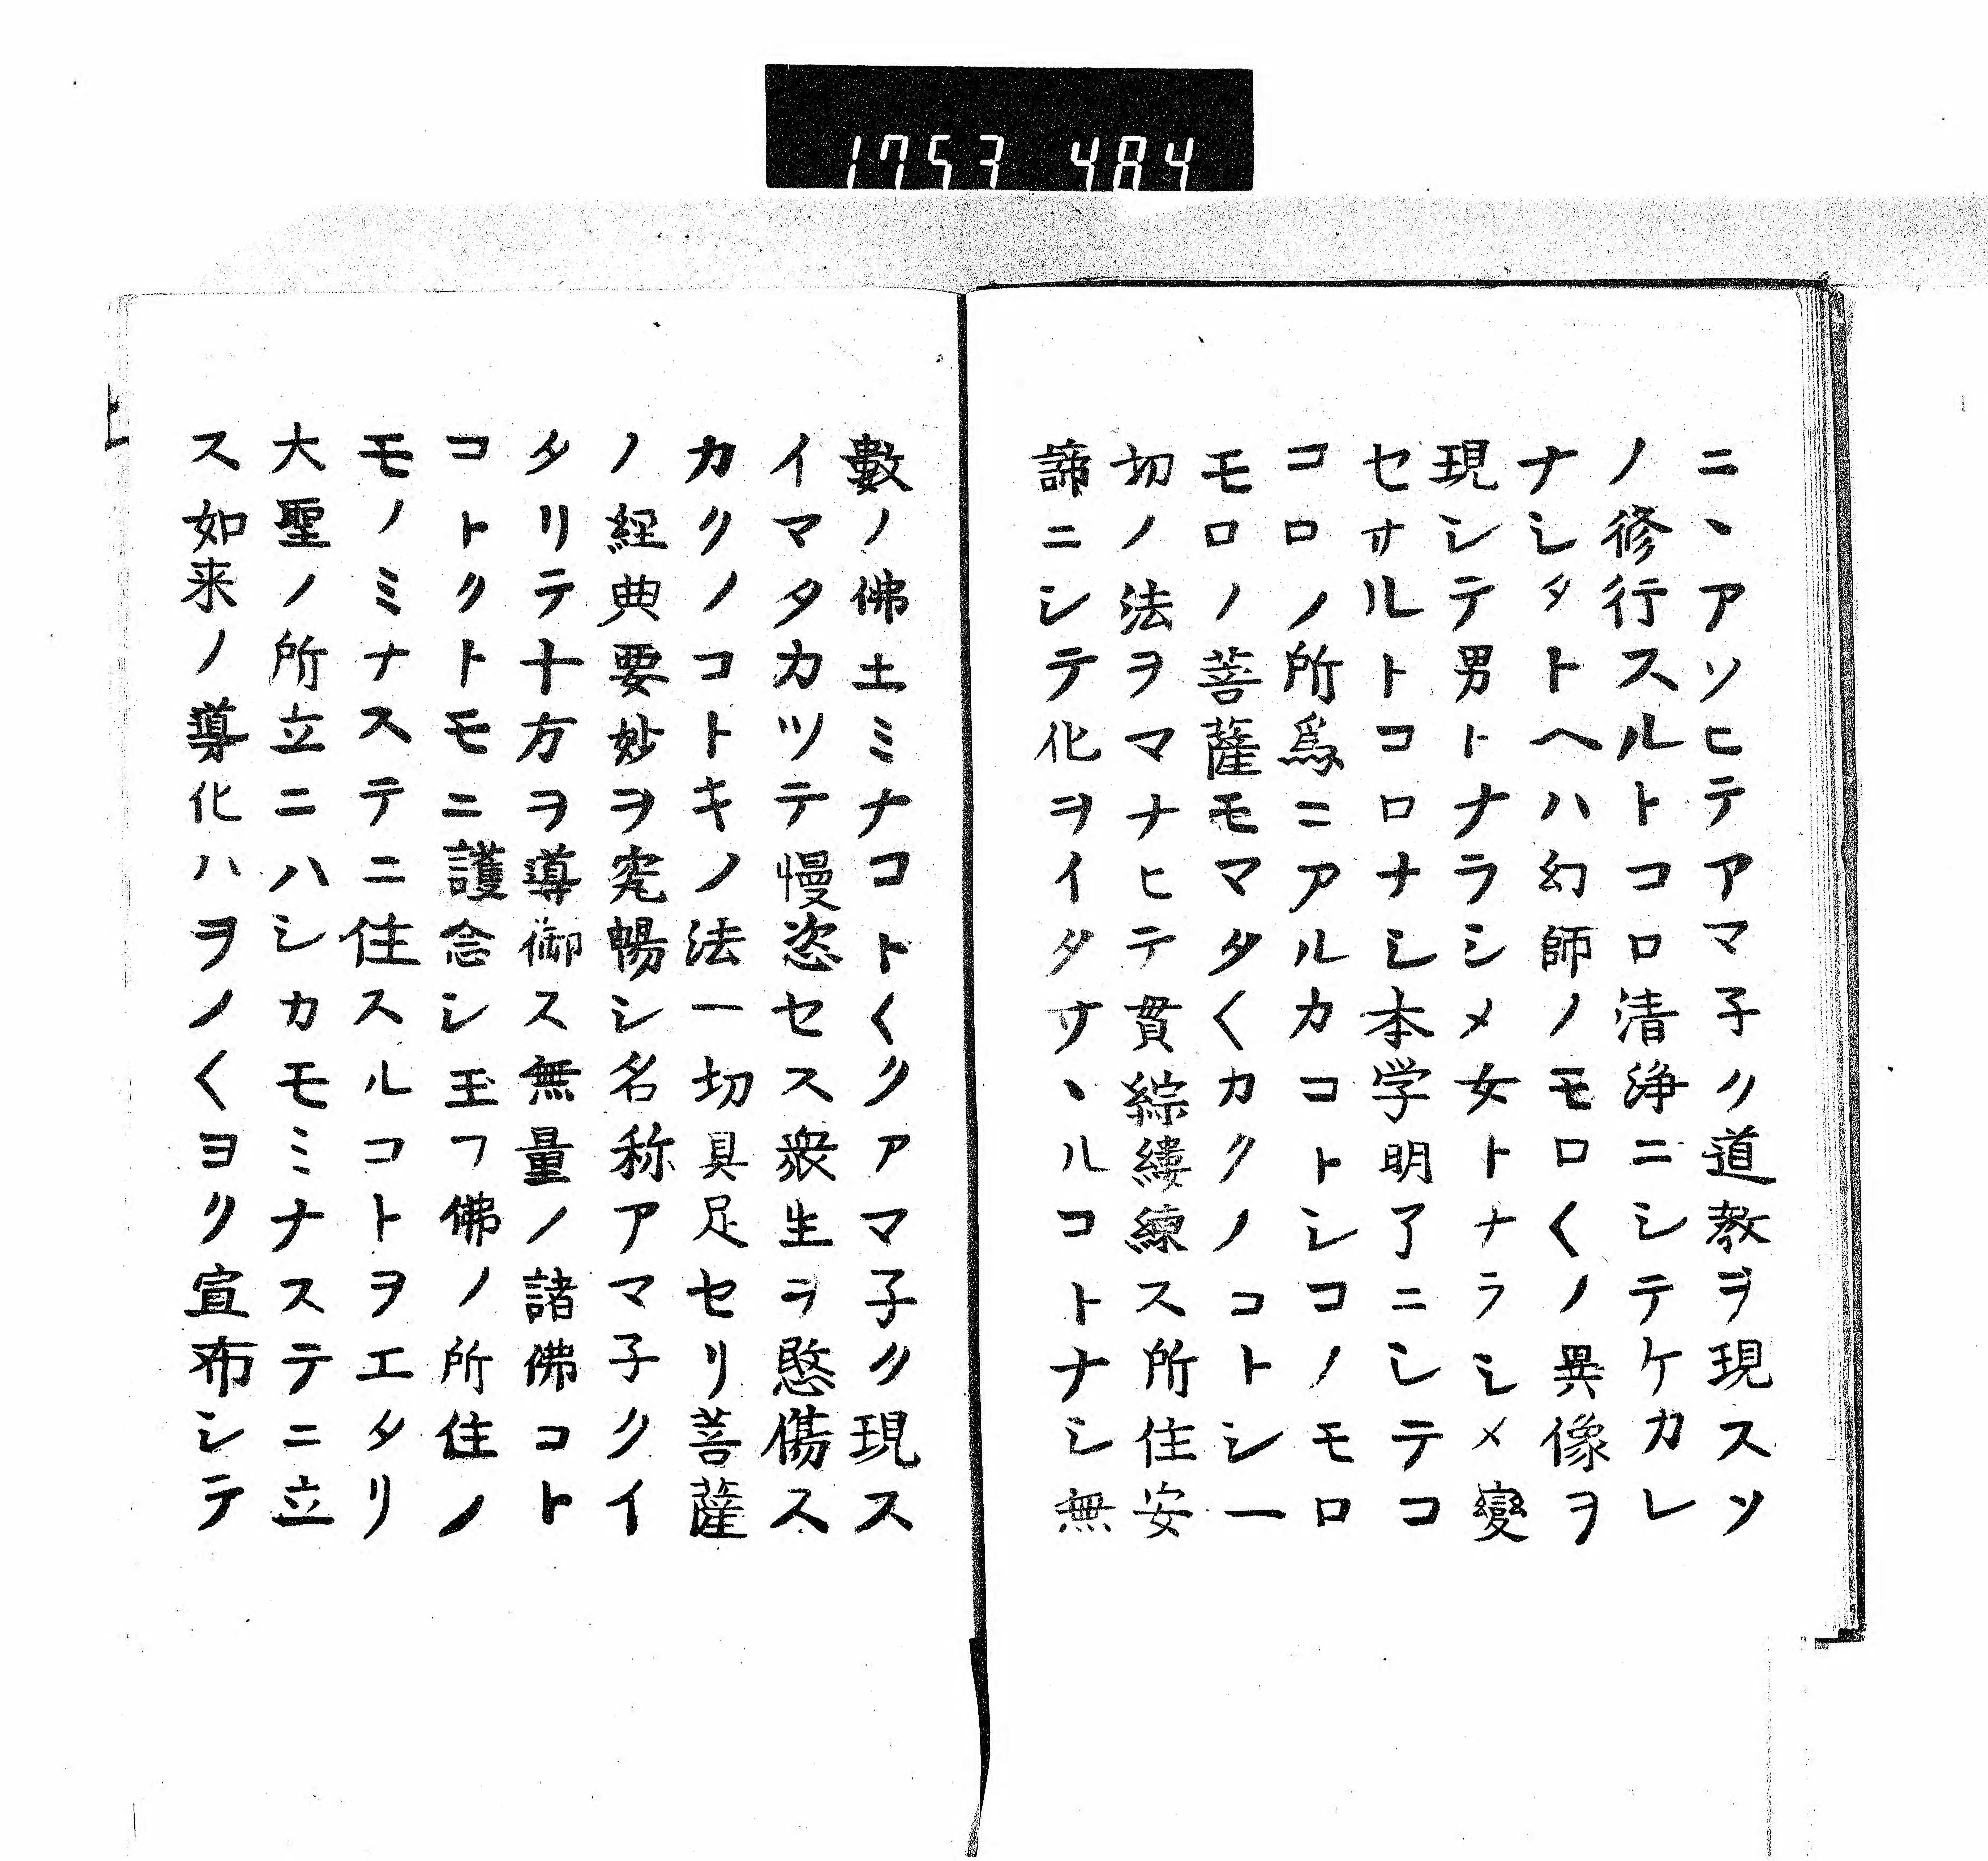 1753 484
ニヽアソヒテアマ子ク道教ヲ現スソ
ノ修行スルトコロ清浄ニシテケカレ
ナシタトヘハ幻師ノモロ〱ノ異像ヲ
現シテ男トナラシメ女トナラシメ變
セサルトコロナシ本学明了ニシテコ
コロノ所爲ニアルカコトシコノモロ
モロノ菩薩モマタ〱カクノコトシ一
切ノ法ヲマナヒテ貫綜縷練ス所住安
諦ニシテ化ヲイタサヽルコトナシ無
數ノ佛土ミナコト〱クアマ子ク現ス
イマタカツテ慢恣セス衆生ヲ愍傷ス
カクノコトキノ法一切具足セリ菩薩
ノ経典要妙ヲ究暢シ名称アマ子クイ
タリテ十方ヲ導御ス無量ノ諸佛コト
コトクトモニ護念シ玉フ佛ノ所住ノ
モノミナステニ住スルコトヲエタリ
大聖ノ所立ニハシカモミナステニ立
ス如来ノ導化ハヲノ〱ヨク宣布シテ